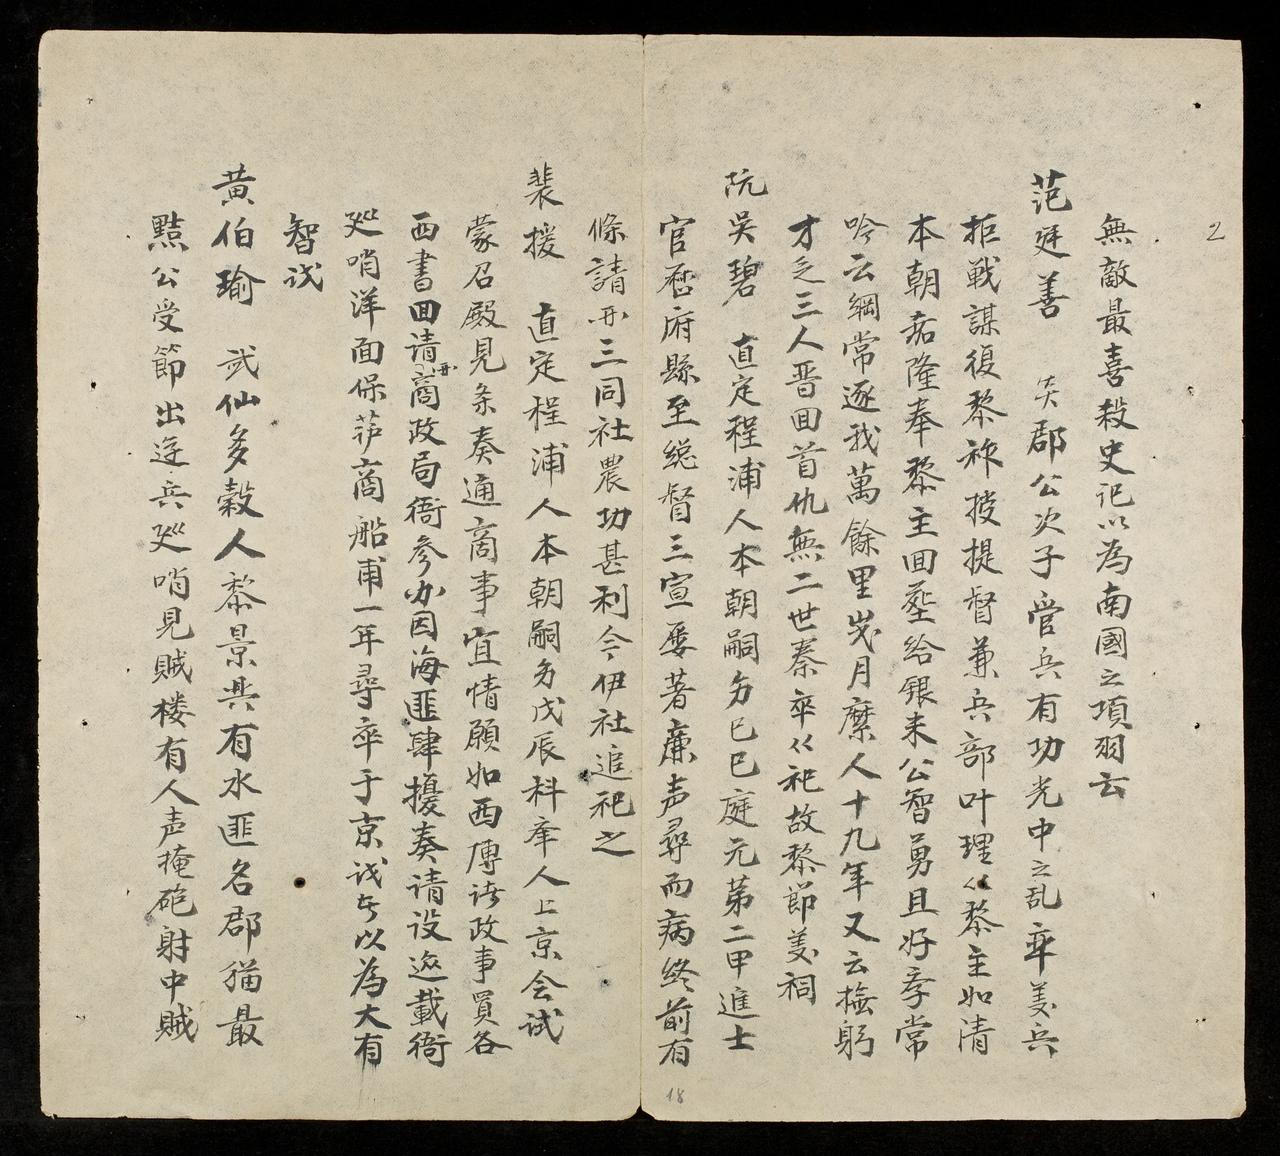 2
無敵最喜殺史記以為南國之項羽云
范廷善 奂郡公次子管兵有功光中之乱率義兵
拒戦謀復黎祚授提督兼兵部叶理从黎主如清
本朝嘉隆奉黎主回塟給銀来公智勇且好孝常
吟云綱常逐我萬餘里歲月縻人十九年又云撫躬
才乏三人晋回首仇無二世秦卒从祀故黎節義祠
阮吴碧 直定程浦人本朝嗣务已巳庭元第二甲進士
官歴府縣至総督三宣屡著廉声尋而病終前有
條請开三同社農功甚利今伊社追祀之
裴援 直定程浦人本朝嗣务戊辰科舉人上京会試
蒙召殿見条奏通商事宜情願如西傳諸政事買各
西書回请开商政局衙参办因海匪肆擾奏请设巡載衙
廵哨洋面保護商船甫一年尋卒于京識者以為大有
智识
黄伯瑜 武仙多穀人黎景興有水匪名郡猫最
黠公受節出逆兵廵哨見賊楼有人声掩砲射中賊
18